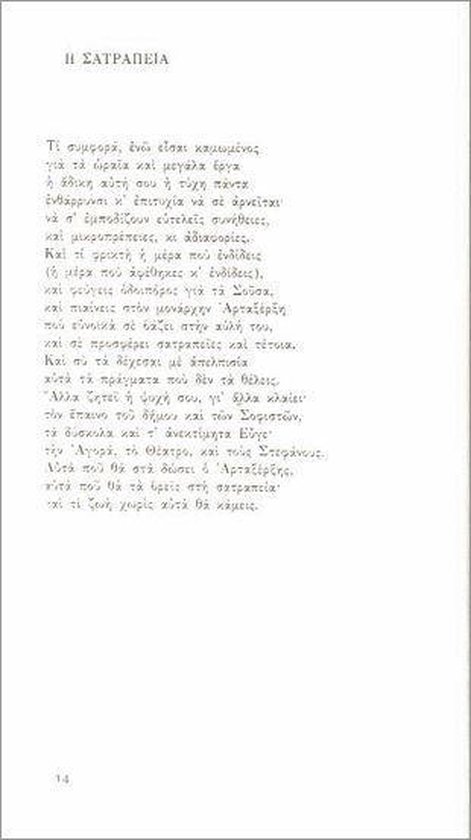 Η ΣΑΤΡΑΠΕΙΑ
Τί συμφορά, ἐνῶ εἶσαι καμωμένος
γιὰ τὰ ὡραῖα καὶ μεγάλα ἔργα
ἡ ἄδικη αὐτή σου ἡ τύχη πάντα
ἐνθάρρυνσι κ' ἐπιτυχία νὰ σὲ ἀρνεῖται·
νὰ σ' ἐμποδίζουν εὐτελεῖς συνήθειες,
καὶ μικροπρέπειες, κι ἀδιαφορίες.
Καὶ τί φρικτὴ ἡ μέρα ποὺ ἐνδίδεις
(ἡ μέρα ποὺ ἀφέθηκες κ' ἐνδίδεις),
καὶ φεύγεις ὁδοιπόρος γιὰ τὰ Σοῦσα,
καὶ πιαίνεις στὸν μονάρχην Ἀρταξέρξη
ποὺ εὐνοϊκὰ σὲ βάζει στὴν αὐλή του,
καὶ σὲ προσφέρει σατραπεῖες καὶ τέτοια.
Καὶ σὺ τὰ δέχεσαι μὲ ἀπελπισία
αὐτὰ τὰ πράγματα ποὺ δὲν τὰ θέλεις.
Ἄλλα ζητεῖ ἡ ψυχή σου, γι' ἄλλα κλαίει·
τὸν ἔπαινο τοῦ δήμου καὶ τῶν Σοφιστῶν,
τὰ δύσκολα καὶ τ' ἀνεκτίμητα Εὖγε·
τὴν Ἀγορά, τὸ Θέατρο, καὶ τοὺς Στεφάνους.
Αὐτὰ ποῦ θὰ στὰ δώσει ὁ Ἀρταξέρξης,
αὐτὰ ποῦ θὰ τὰ βρεῖς στὴ σατραπεία·
καὶ τί ζωὴ χωρὶς αὐτὰ θὰ κάμεις.
14